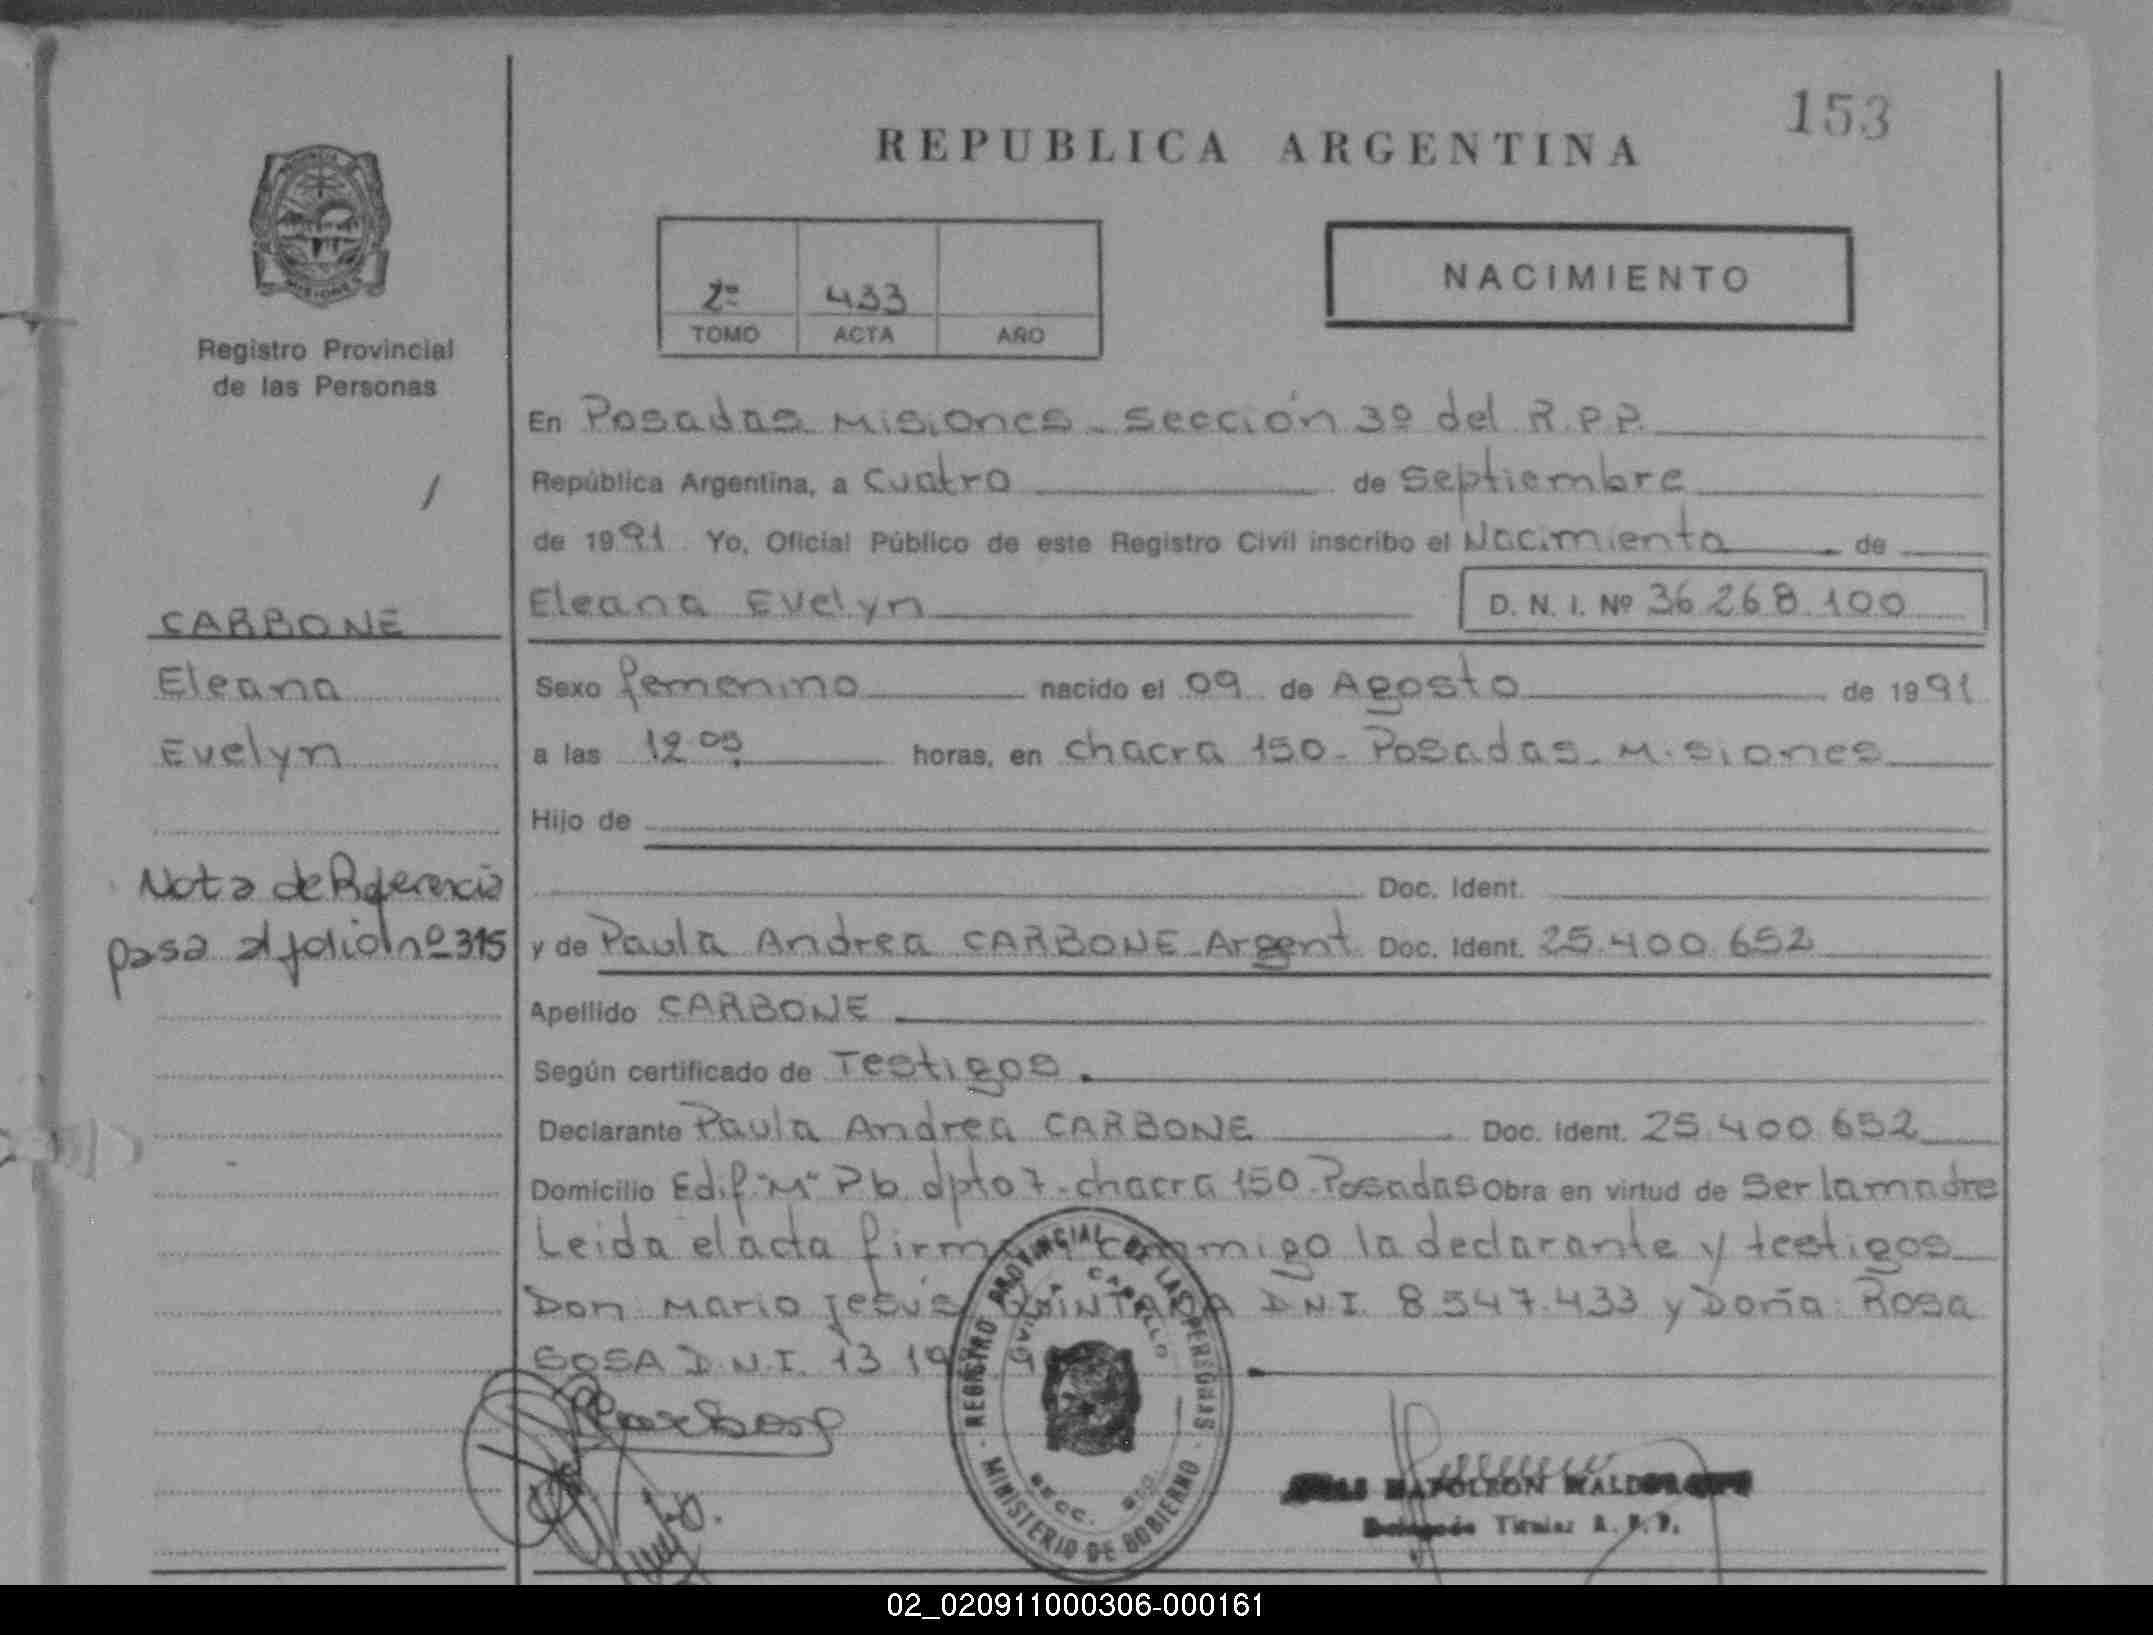 153
REPUBLICA ARGENTINA
NACIMIENTO
2º 433
TOMO ACTA AÑO
MISIONES
Registro Provincial
de las Personas
En Posadas Misiones - Sección 3º del R.P.P.
República Argentina, a Cuatro de Septiembre
de 1991 Yo, Oficial Público de este Registro Civil inscribo el Nacimiento de
Eleana Evelyn D. N. I. Nº 36.268.100
CARBONE
Eleana
Evelyn
Sexo femenino nacido el 09 de Agosto de 1991
a las 12 05 horas, en chacra 150 - Posadas - Misiones
Hijo de
Doc. Ident.
Nota de Referencia
pasa al folio nº 315
y de Paula Andrea CARBONE - Argent. Doc. Ident. 25.400.652
Apellido CARBONE
Según certificado de Testigos.
Declarante Paula Andrea CARBONE Doc. Ident. 25.400.652
Domicilio Edif "M" Pb dpto 7 - chacra 150 - Posadas Obra en virtud de Ser la madre
Leida el acta firma conmigo la declarante y testigos
Don Mario Jesús QUINTANA D.N.I. 8.547.433 y Doña Rosa
SOSA D.N.I. 13.19
REGISTRO PROVINCIAL DE LAS PERSONAS
MINISTERIO DE GOBIERNO
NAPOLEON
Titular R. P. P.
02_020911000306-000161